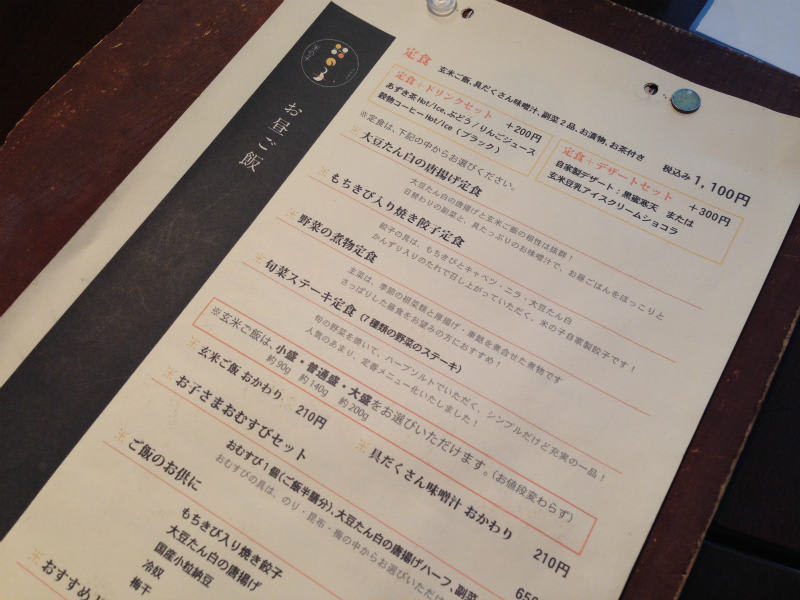 お昼ご飯
定食
玄米ご飯、具だくさん味噌汁、副菜2品、お漬物、お茶付き
税込み1,100円
定食+ドリンクセット +200円
あずき茶Hot/Ice、ぶどう/りんごジュース
穀物コーヒーHot/Ice(ブラック)
定食+デザートセット +300円
自家製デザート:黒蜜寒天 または
玄米豆乳アイスクリームショコラ
※定食は、下記の中からお選びください。
大豆たん白の唐揚げ定食
大豆たん白の唐揚げと玄米ご飯の相性は抜群!
日替わりの副菜と、具たっぷりのお味噌汁で、お昼ごはんをほっこりと
もちきび入り焼き餃子定食
餃子の具は、もちきびとキャベツ・ニラ・大豆たん白
かんずり入りのたれで召し上がっていただく、米の子自家製餃子です!
野菜の煮物定食
主菜は、季節の根菜類と厚揚げ・車麩を煮合せた煮物です
さっぱりした昼食をお望みの方におすすめ!
旬菜ステーキ定食(7種類の野菜のステーキ)
旬の野菜を焼いて、ハーブソルトでいただく、シンプルだけど充実の一品!
人気のあまり、定番メニュー化いたしました!
※玄米ご飯は、小盛・普通盛・大盛をお選びいただけます。(お値段変わらず)
約90g 約140g 約200g
玄米ご飯 おかわり 210円
具だくさん味噌汁 おかわり 210円
お子さまおむすびセット
おむすび1個(ご飯半膳分)、大豆たん白の唐揚げハーフ、副菜
650
おむすびの具は、のり・昆布・梅の中からお選びいただけ
ご飯のお供に
もちきび入り焼き餃子
大豆たん白の唐揚げ
国産小粒納豆
冷奴
梅干
おすすめ